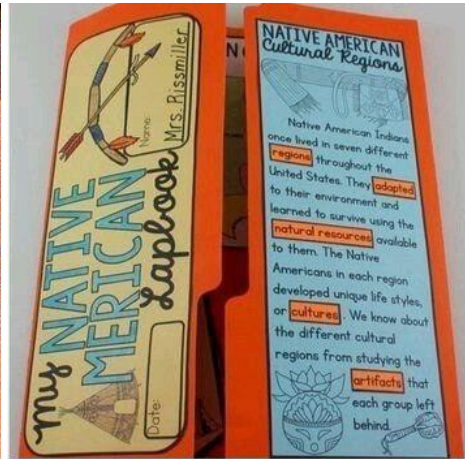 my NATIVE
MERICAN
Lapbook
Name:
Mrs. Rissmiller
Date:
N
NATIVE AMERICAN
Cultural Regions
Native American Indians
once lived in seven different
regions throughout the
United States. They adapted
to their environment and
learned to survive using the
natural resources available
to them. The Native
Americans in each region
developed unique life styles,
or cultures. We know about
the different cultural
regions from studying the
artifacts that
each group left
behind.